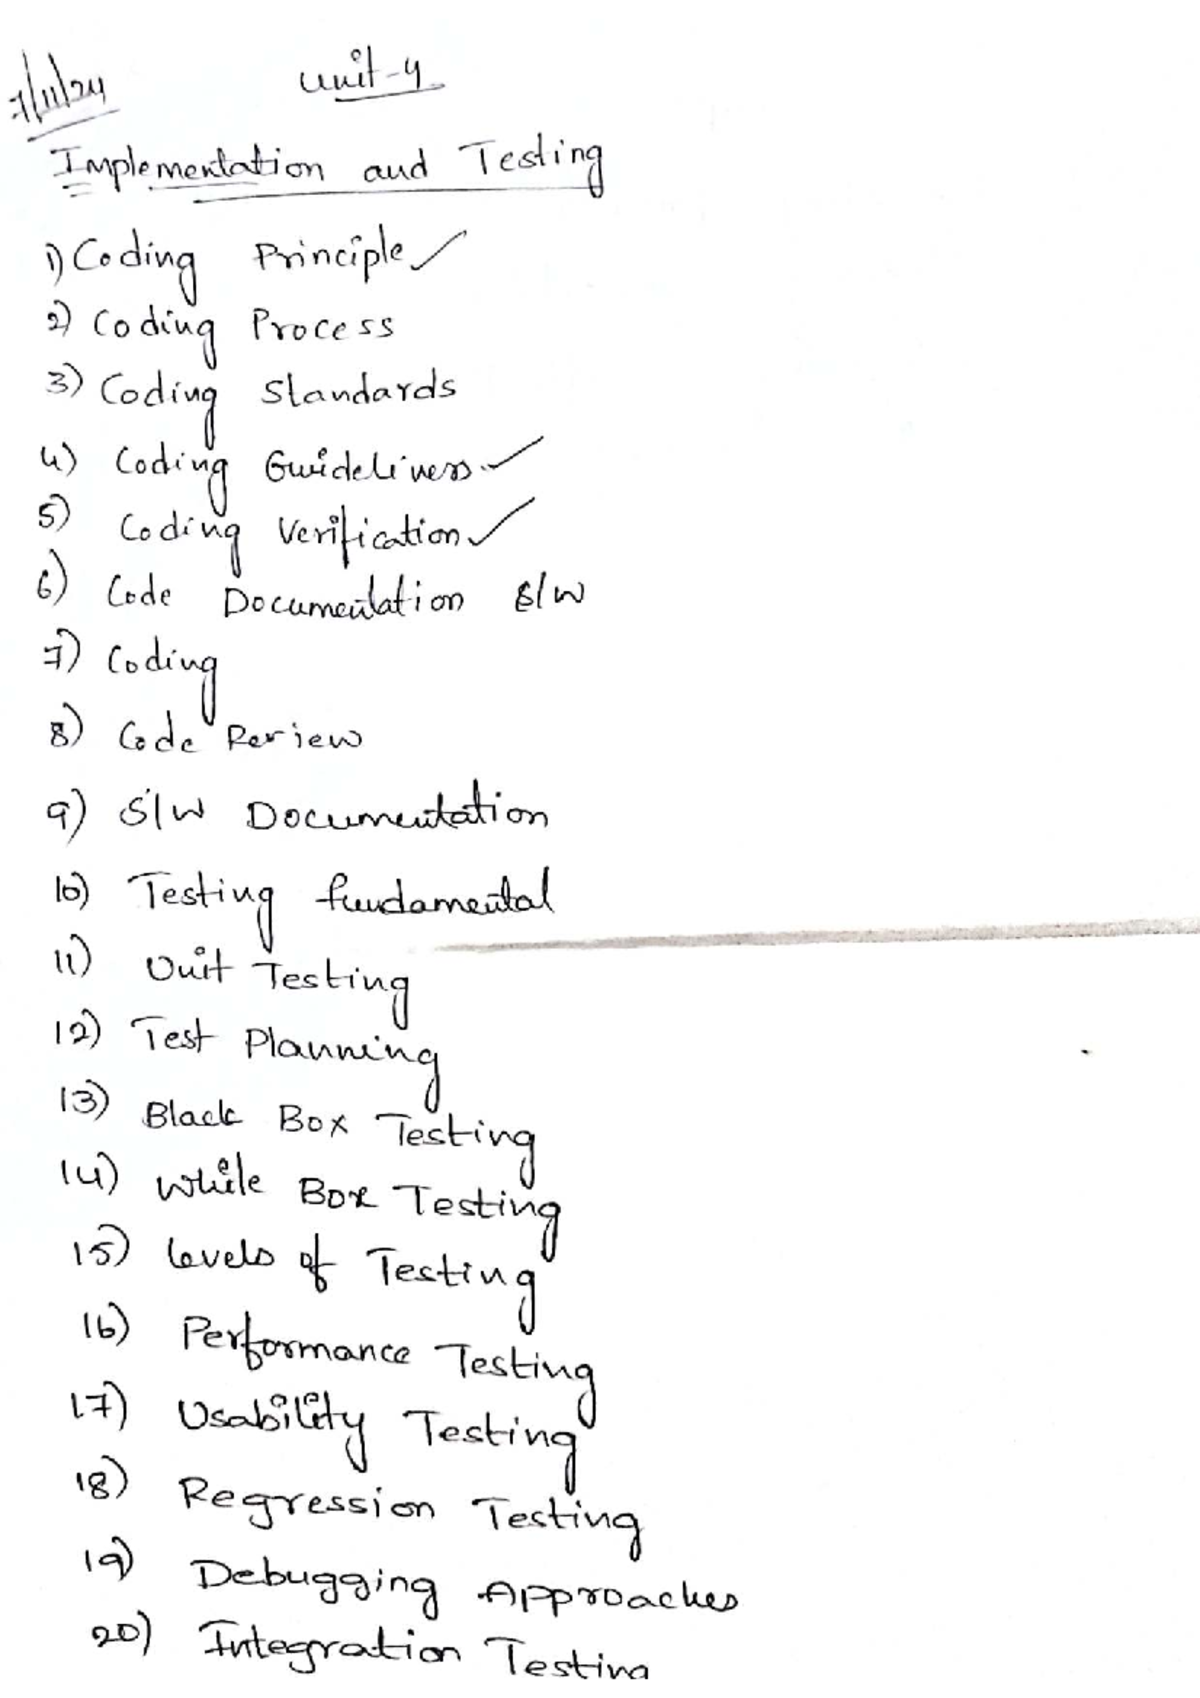 7/11/24
Unit-4
Implementation and Testing
1) Coding Principle ✓
2) Coding Process
3) Coding Standards
4) Coding Guidelines ✓
5) Coding Verification ✓
6) Code Documentation S/W
7) Coding
8) Code Review
9) S/W Documentation
10) Testing fundamental
11) Unit Testing
12) Test Planning
13) Black Box Testing
14) While Box Testing
15) levels of Testing
16) Performance Testing
17) Usability Testing
18) Regression Testing
19) Debugging Approaches
20) Integration Testing